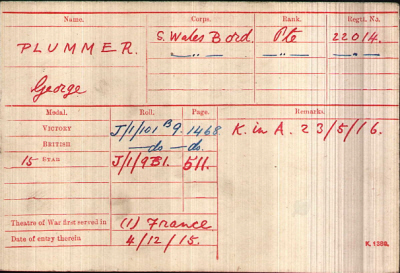 Name. Corps. Rank. Regtl. No.
PLUMMER. S. Wales Bord. Pte 22014.
—"— —"— —"—
George
Medal. Roll. Page. Remarks.
VICTORY J/1/101 B9. 1468. K. in A. 23/5/16.
BRITISH —do— —do.
15 STAR J/1/9B1. 511.
Theatre of War first served in (1) France
Date of entry therein 4/12/15.
K. 1380.